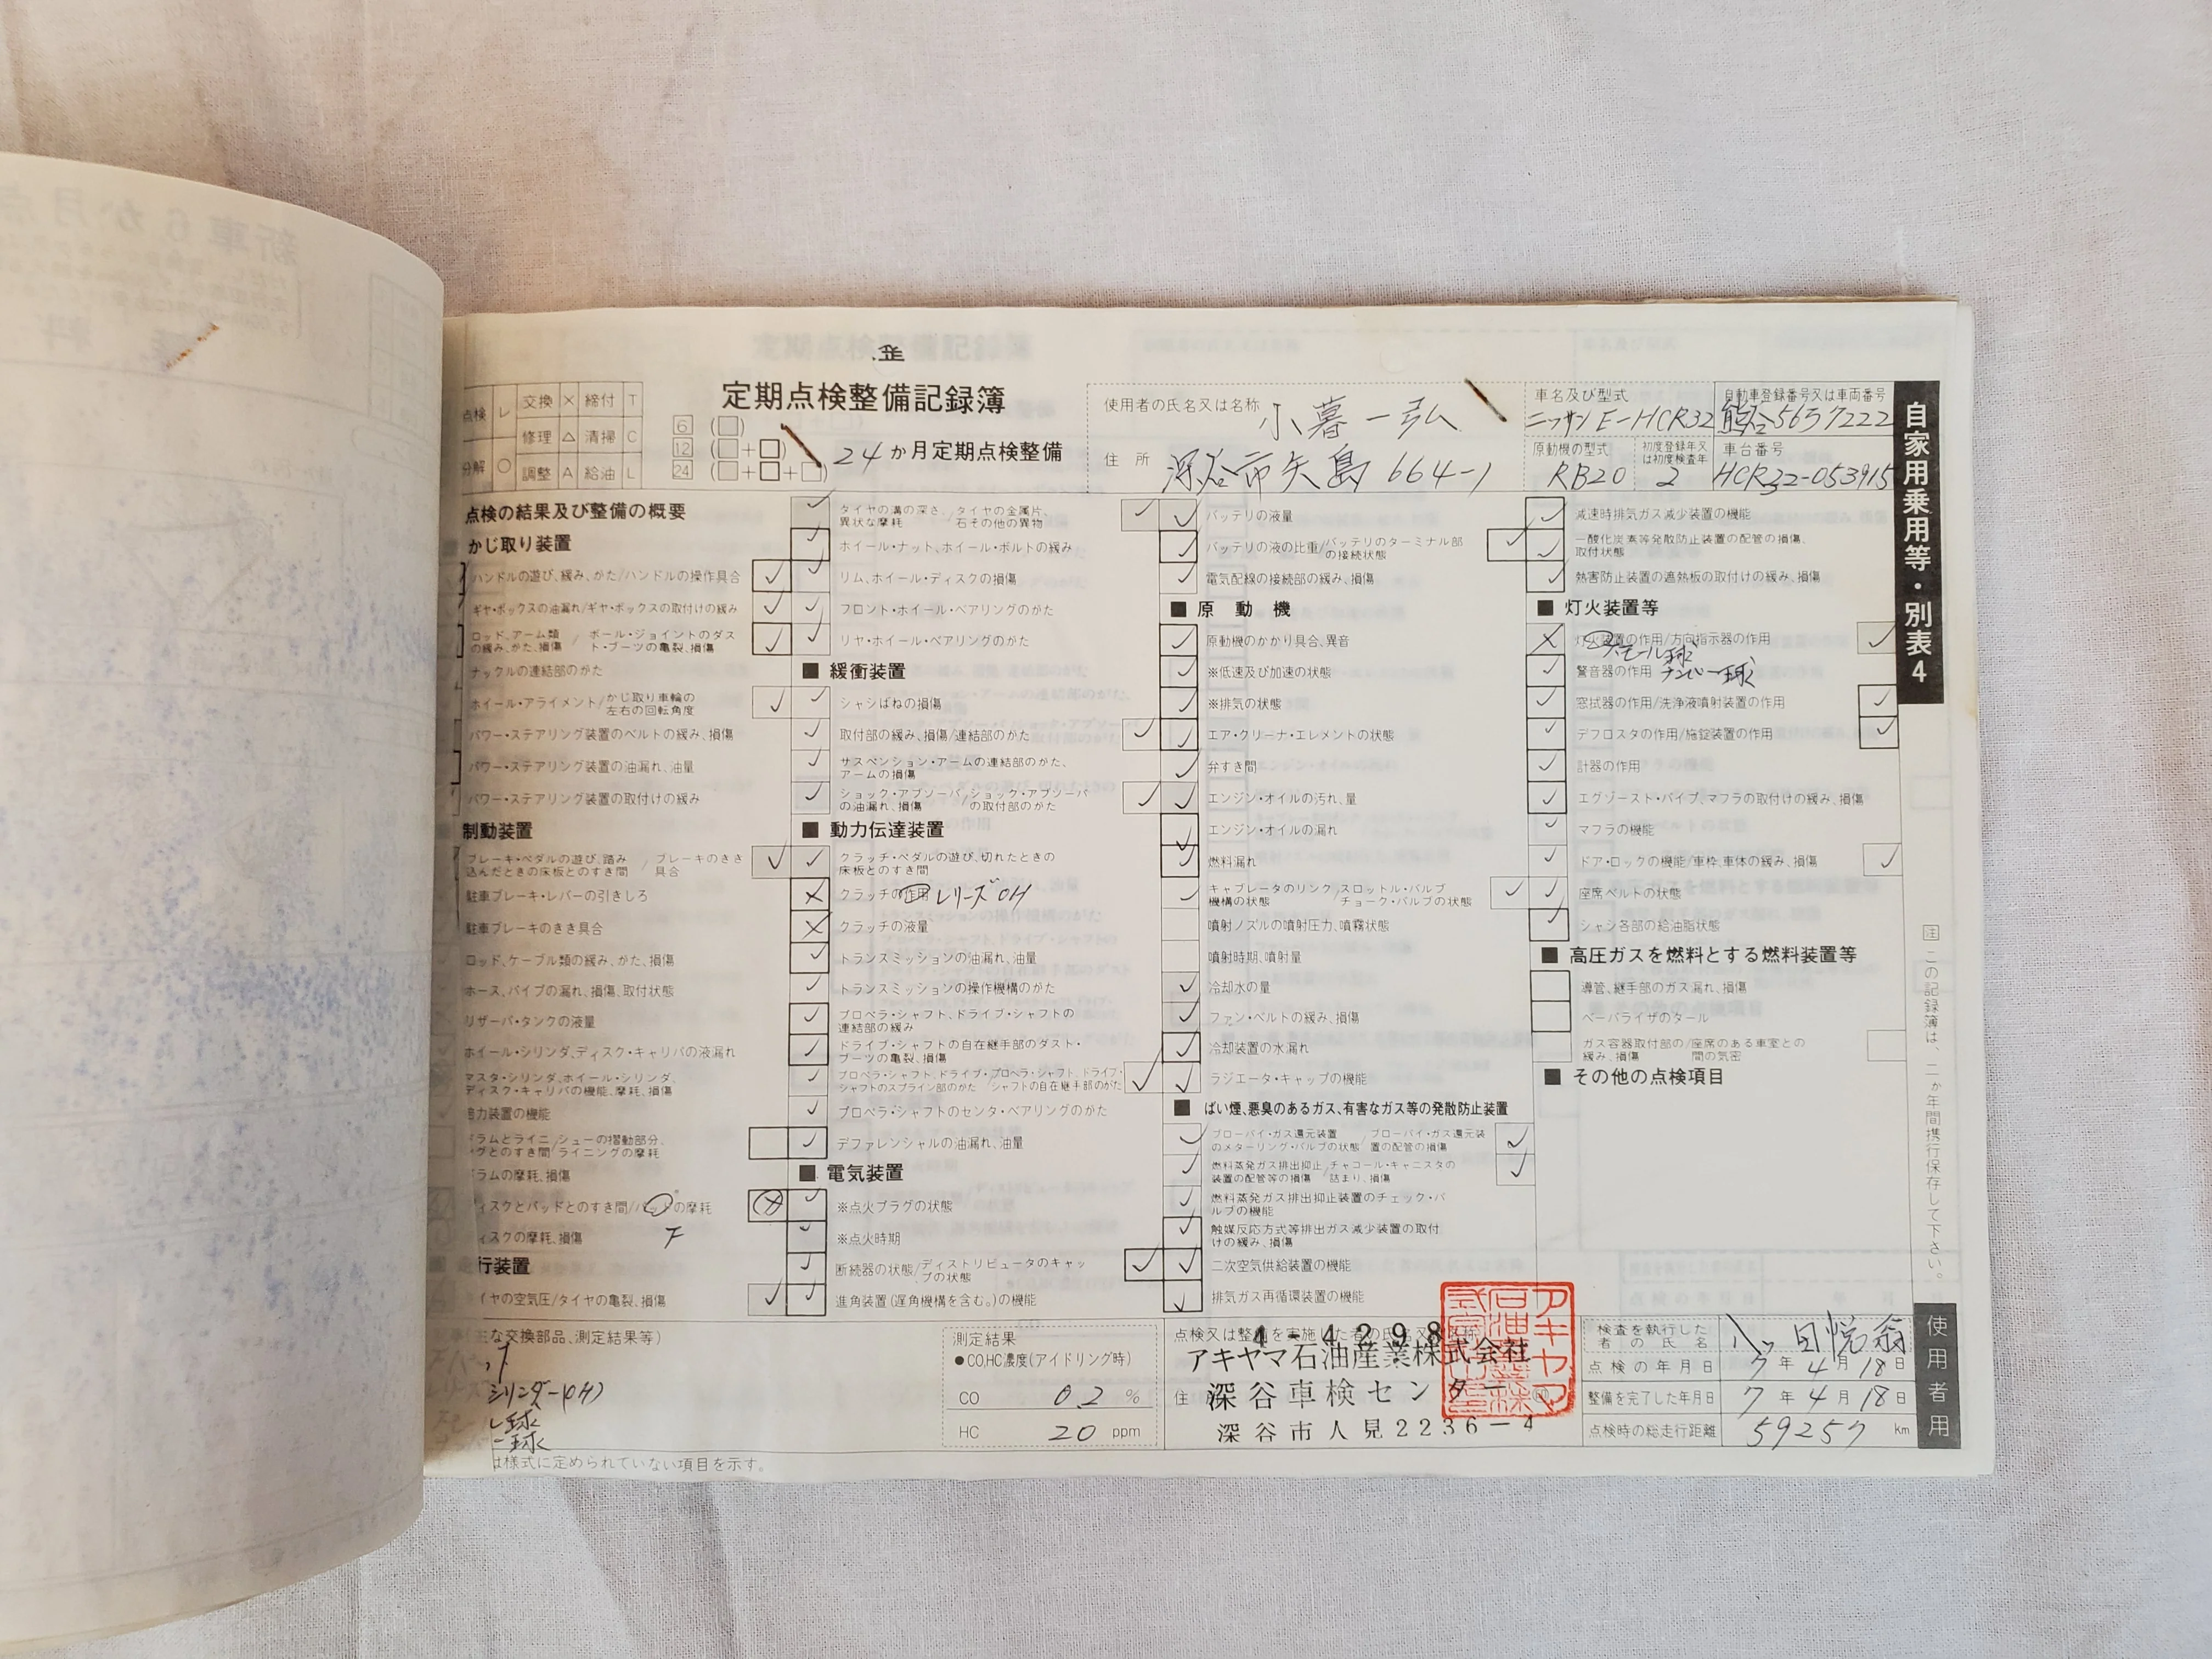 歪
点検 レ 交換 × 締付 T
修理 △ 清掃 C
分解 ○ 調整 A 給油 L
定期点検整備記録簿
6 (□)
12 (□+□)
24 (□+□+□)
24か月定期点検整備
使用者の氏名又は名称 小暮一弘
住所 深谷市矢島664-1
車名及び型式 ニッサンE-HCR32
自動車登録番号又は車両番号 熊谷56ろ7222
原動機の型式 RB20
初度登録年又は初度検査年 2
車台番号 HCR32-053915
自家用乗用等・別表4
点検の結果及び整備の概要
かじ取り装置
ハンドルの遊び、緩み、がた/ハンドルの操作具合
ギヤ・ボックスの油漏れ/ギヤ・ボックスの取付けの緩み
ロッド、アーム類の緩み、がた、損傷/ボール・ジョイントのダスト・ブーツの亀裂、損傷
ナックルの連結部のがた
ホイール・アライメント/かじ取り車輪の左右の回転角度
パワー・ステアリング装置のベルトの緩み、損傷
パワー・ステアリング装置の油漏れ、油量
パワー・ステアリング装置の取付けの緩み
制動装置
ブレーキ・ペダルの遊び、踏み込んだときの床板とのすき間/ブレーキのきき具合
駐車ブレーキ・レバーの引きしろ
駐車ブレーキのきき具合
ロッド、ケーブル類の緩み、がた、損傷
ホース、パイプの漏れ、損傷、取付状態
リザーバ・タンクの液量
ホイール・シリンダ、ディスク・キャリパの液漏れ
マスタ・シリンダ、ホイール・シリンダ、ディスク・キャリパの機能、摩耗、損傷
倍力装置の機能
ラムとライニングとのすき間/シューの摺動部分、ライニングの摩耗
ラムの摩耗、損傷
ィスクとパッドとのすき間/パッドの摩耗
ィスクの摩耗、損傷 F
行装置
イヤの空気圧/タイヤの亀裂、損傷
タイヤの溝の深さ、異状な摩耗/タイヤの金属片、石その他の異物
ホイール・ナット、ホイール・ボルトの緩み
リム、ホイール・ディスクの損傷
フロント・ホイール・ベアリングのがた
リヤ・ホイール・ベアリングのがた
■ 緩衝装置
シャシばねの損傷
取付部の緩み、損傷/連結部のがた
サスペンション・アームの連結部のがた、アームの損傷
ショック・アブソーバの油漏れ、損傷/ショック・アブソーバの取付部のがた
■ 動力伝達装置
クラッチ・ペダルの遊び、切れたときの床板とのすき間
クラッチの作用 レリーズOH
クラッチの液量
トランスミッションの油漏れ、油量
トランスミッションの操作機構のがた
プロペラ・シャフト、ドライブ・シャフトの連結部の緩み
ドライブ・シャフトの自在継手部のダスト・ブーツの亀裂、損傷
プロペラ・シャフト、ドライブ・シャフトのスプライン部のがた/プロペラ・シャフト、ドライブ・シャフトの自在継手部のがた
プロペラ・シャフトのセンタ・ベアリングのがた
デファレンシャルの油漏れ、油量
■ 電気装置
※点火プラグの状態
※点火時期
断続器の状態/ディストリビュータのキャップの状態
進角装置(遅角機構を含む。)の機能
バッテリの液量
バッテリの液の比重/バッテリのターミナル部の接続状態
電気配線の接続部の緩み、損傷
■ 原動機
原動機のかかり具合、異音
※低速及び加速の状態
※排気の状態
エア・クリーナ・エレメントの状態
弁すき間
エンジン・オイルの汚れ、量
エンジン・オイルの漏れ
燃料漏れ
キャブレータのリンク機構の状態/スロットル・バルブ チョーク・バルブの状態
噴射ノズルの噴射圧力、噴霧状態
噴射時期、噴射量
冷却水の量
ファン・ベルトの緩み、損傷
冷却装置の水漏れ
ラジエータ・キャップの機能
■ ばい煙、悪臭のあるガス、有害なガス等の発散防止装置
ブローバイ・ガス還元装置のメターリング・バルブの状態/ブローバイ・ガス還元装置の配管の損傷
燃料蒸発ガス排出抑止装置の配管等の損傷/チャコール・キャニスタの詰まり、損傷
燃料蒸発ガス排出抑止装置のチェック・バルブの機能
触媒反応方式等排出ガス減少装置の取付けの緩み、損傷
二次空気供給装置の機能
排気ガス再循環装置の機能
減速時排気ガス減少装置の機能
一酸化炭素等発散防止装置の配管の損傷、取付状態
熱害防止装置の遮熱板の取付けの緩み、損傷
■ 灯火装置等
灯火装置の作用/方向指示器の作用
スモール球
警音器の作用 ナンバー球
窓拭器の作用/洗浄液噴射装置の作用
デフロスタの作用/施錠装置の作用
計器の作用
エグゾースト・パイプ、マフラの取付けの緩み、損傷
マフラの機能
ドア・ロックの機能/車枠、車体の緩み、損傷
座席ベルトの状態
シャシ各部の給油脂状態
■ 高圧ガスを燃料とする燃料装置等
導管、継手部のガス漏れ、損傷
ベーパライザのタール
ガス容器取付部の緩み、損傷/座席のある車室との間の気密
■ その他の点検項目
注 この記録簿は、二か年間携行保存して下さい。
主な交換部品、測定結果等)
シリンダー(OH)
レ球
ー球
は様式に定められていない項目を示す。
測定結果
●CO,HC濃度(アイドリング時)
CO 0.2 %
HC 20 ppm
点検又は整備を実施した者の氏名又は名称
4-4298
アキヤマ石油産業株式会社
深谷車検センター
深谷市人見2236-4
検査を執行した者の氏名
点検の年月日 7年4月18日
整備を完了した年月日 7年4月18日
点検時の総走行距離 59257 km
使用者用